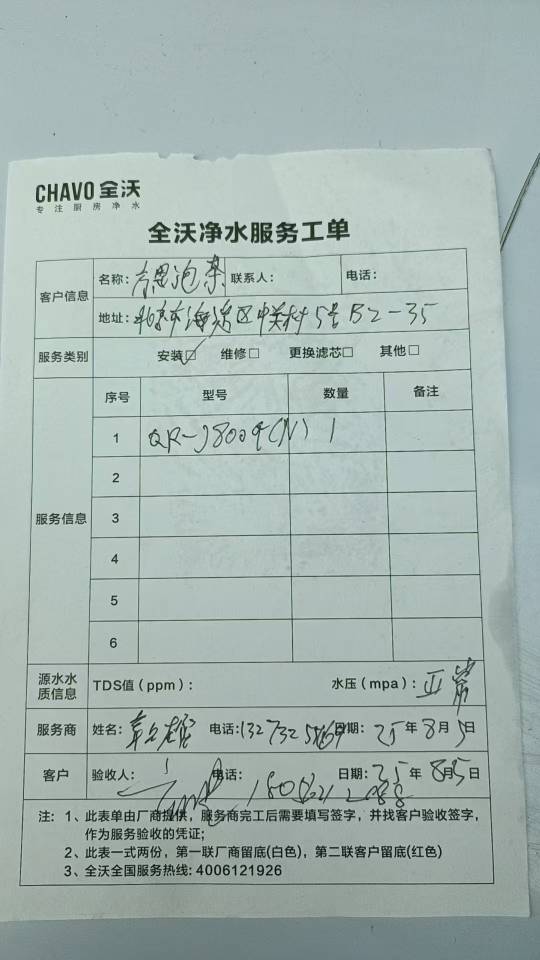 CHAVO 全沃
专注厨房净水
全沃净水服务工单
客户信息 名称： 联系人： 电话：
地址：北京市海淀区中关村5号B2-35
服务类别 安装☑ 维修□ 更换滤芯□ 其他□
服务信息 序号 型号 数量 备注
1 QR-J800G(N) 1
2
3
4
5
6
源水水质信息 TDS值（ppm）： 水压（mpa）：正常
服务商 姓名： 电话： 日期：25年8月5日
客户 验收人： 电话： 日期：25年8月5日
注：1、此表单由厂商提供，服务商完工后需要填写签字，并找客户验收签字，
作为服务验收的凭证；
2、此表一式两份，第一联厂商留底(白色)，第二联客户留底(红色)
3、全沃全国服务热线：4006121926